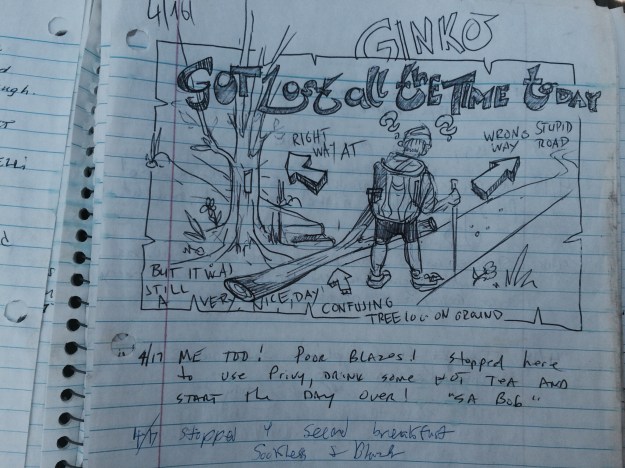 4/16
GINKO
GOT Lost all the TIME today
RIGHT
WAY AT
WRONG
WAY
STUPID
ROAD
BUT IT WAS
STILL
A VERY NICE DAY
CONFUSING
TREE LOG ON GROUND
4/17 ME TOO! Poor Blazes! Stopped here
to use Privy, drink some HOT TEA AND
START the DAY Over! "SA BOB"
4/17 stopped 4 second breakfast
Sockless +
ugh.